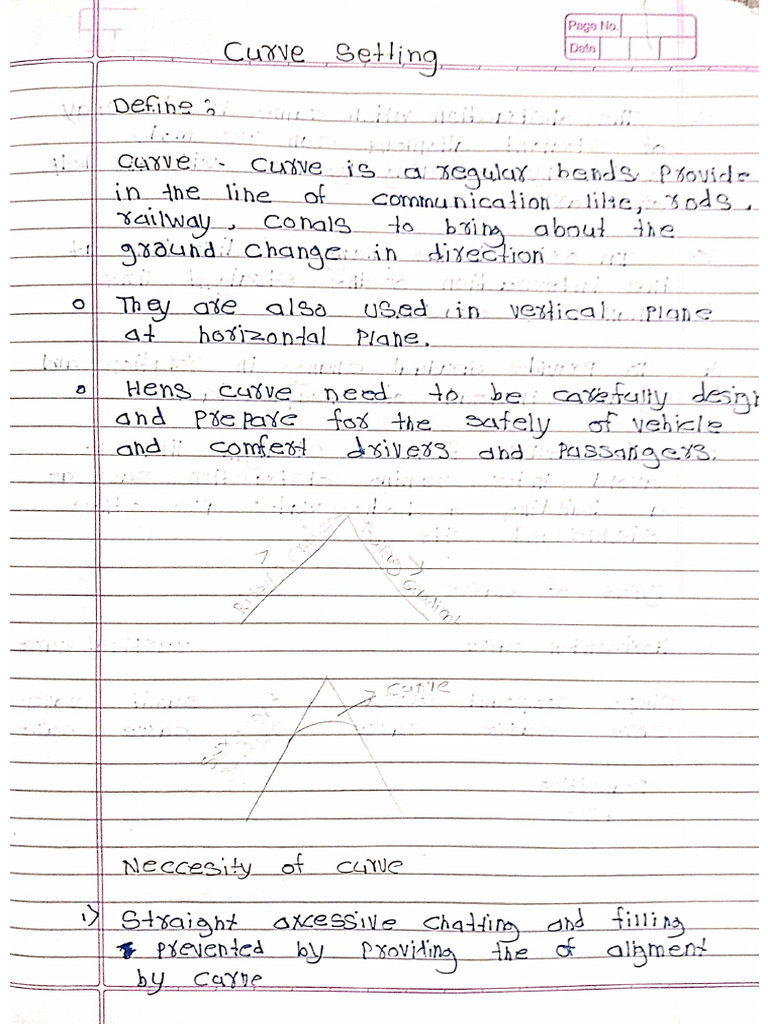 Page No.
Date
Curve Setting
Define :
Curve - Curve is a regular bends provide
in the line of communication like, rods,
railway, conals to bring about the
ground change in direction
They are also used in vertical plane
at horizontal plane.
Hens, curve need to be carefully design
and prepare for the safely of vehicle
and comfert drivers and passangers.
curve
Neccesity of curve
i) Straight axcessive chatting and filling
prevented by providing the of alignment
by carve